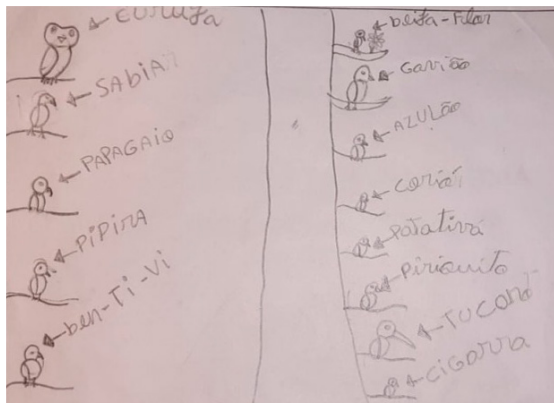 CURUJA
SABIAR
PAPAGAIO
PIPIRA
ben-Ti-Vi
beija-Flor
GaviÃo
AZULÃO
curió
Patativa
Piriquito
TUCANO
CiGARRA